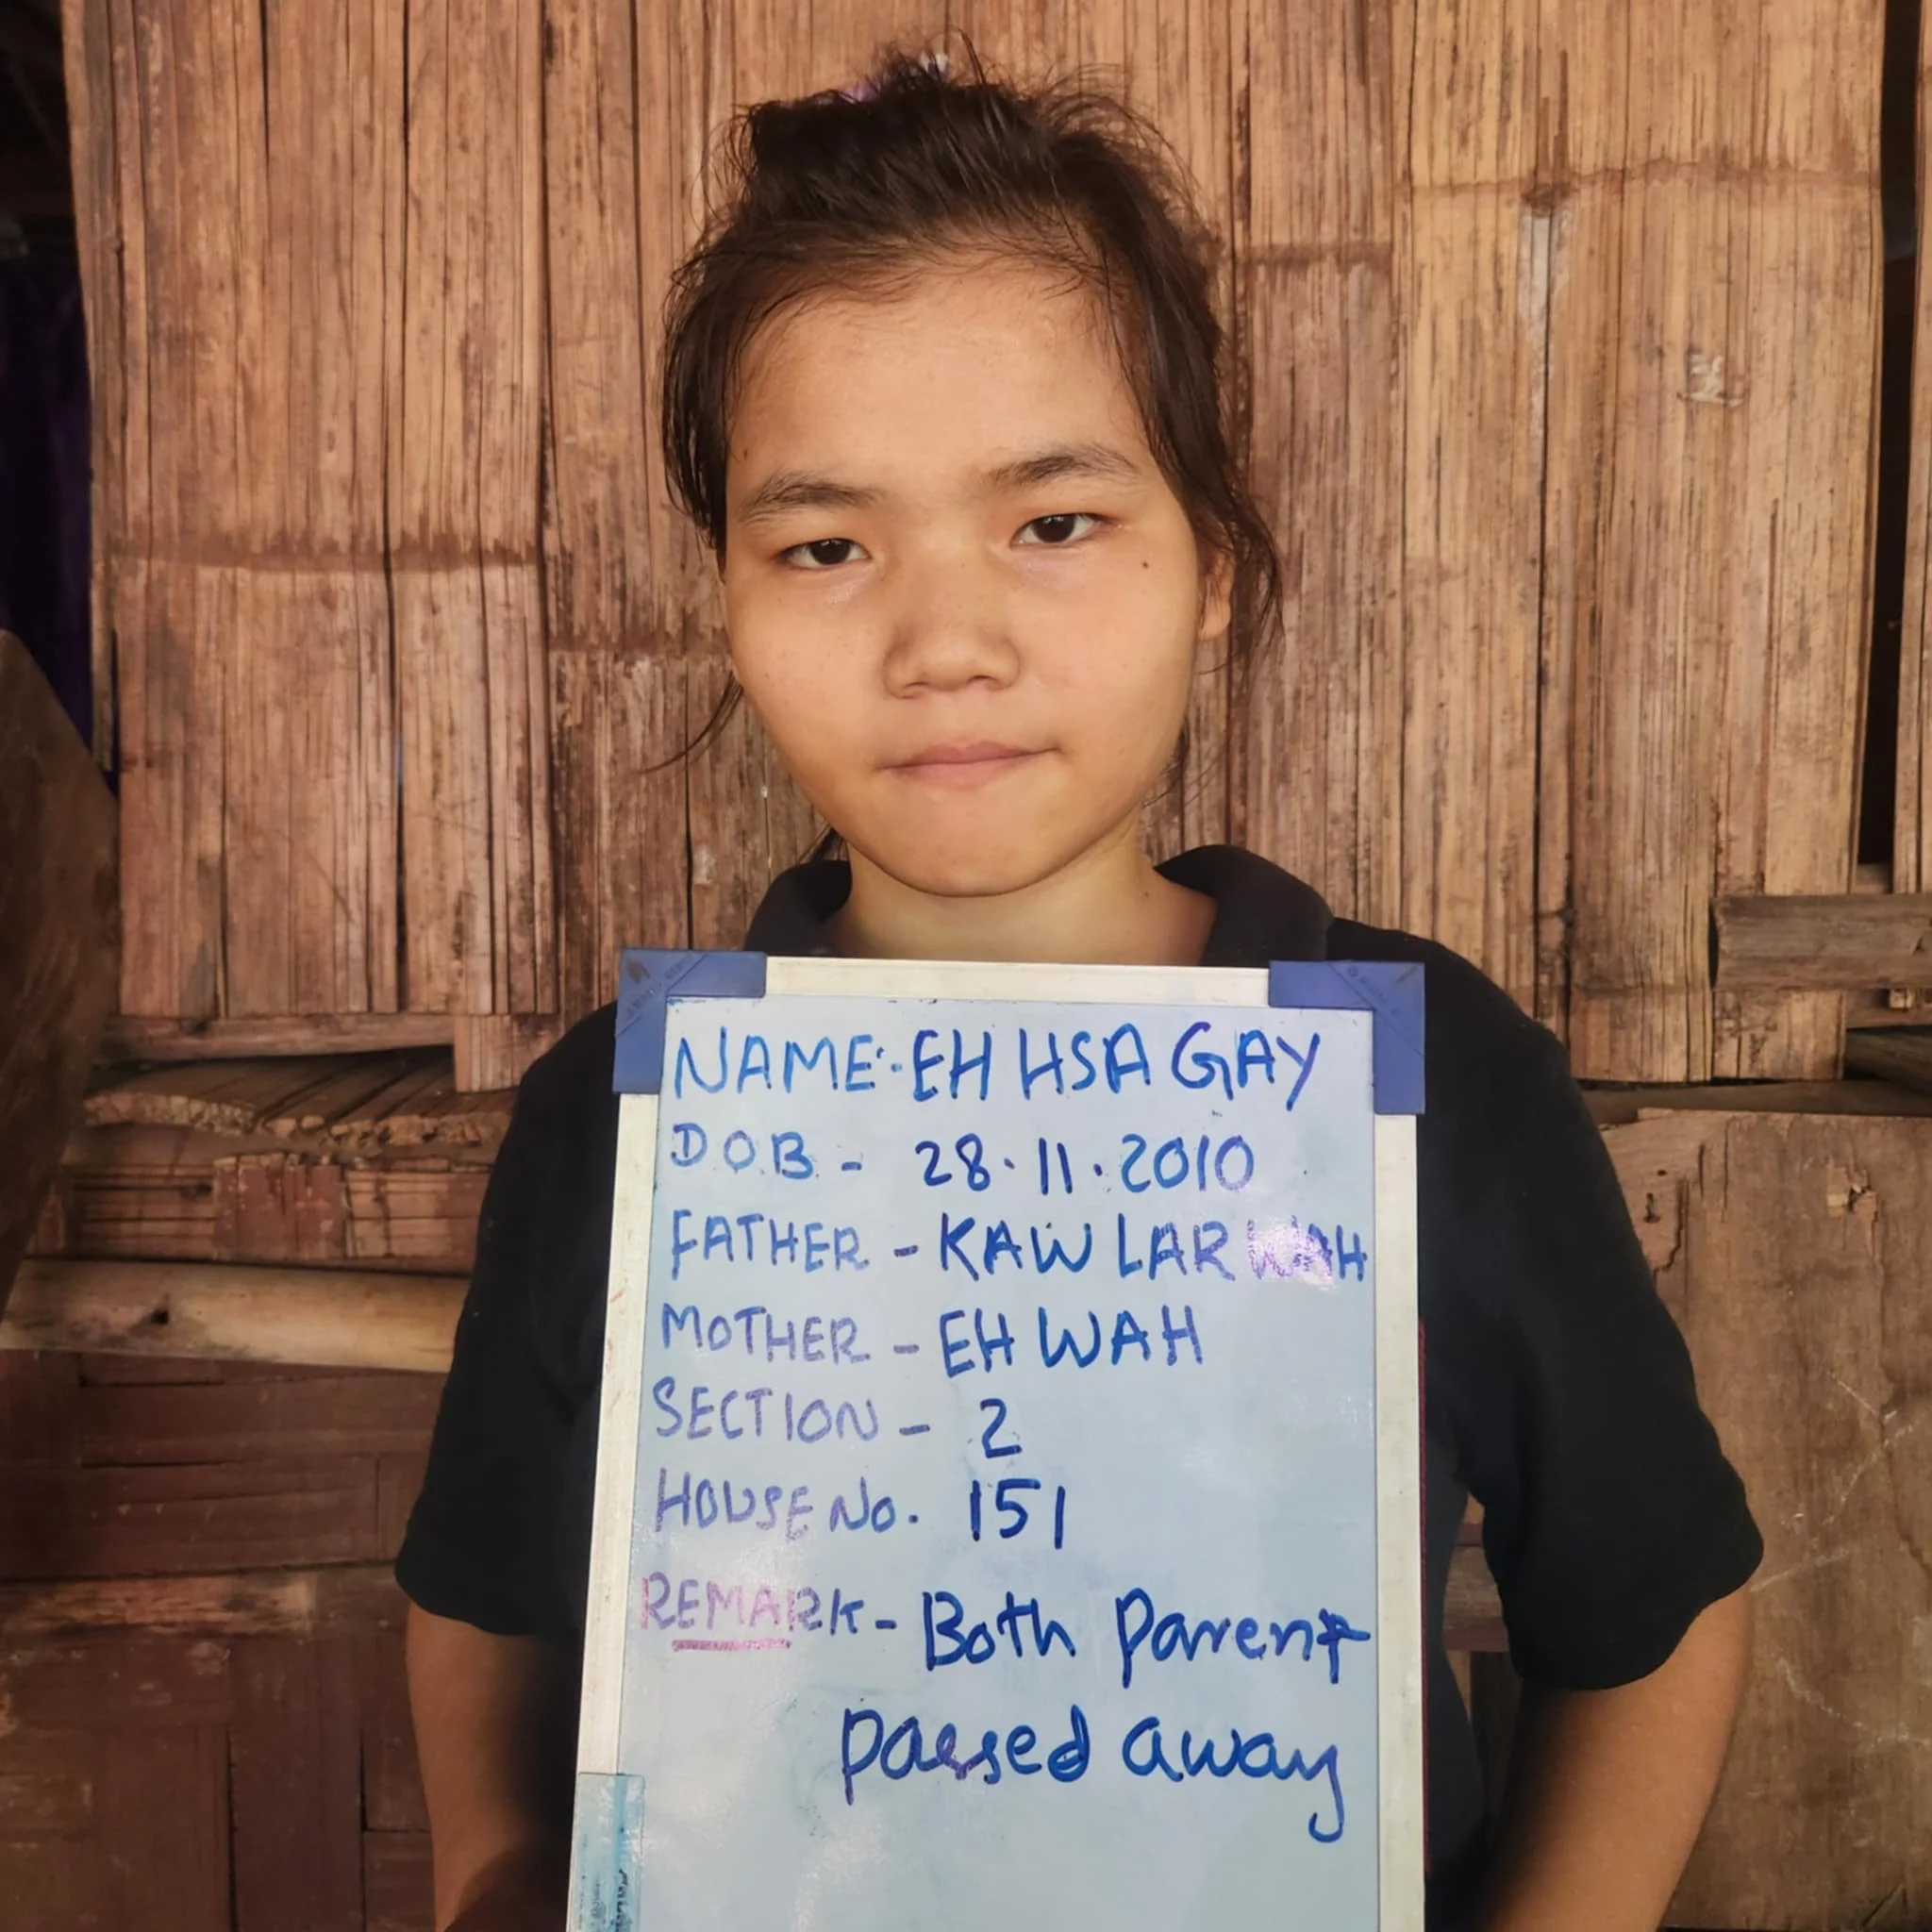 NAME:-EH HSA GAY
D.O.B. - 28.11.2010
FATHER - KAW LAR WAH
MOTHER - EH WAH
SECTION - 2
HOUSE NO. 151
REMARK - Both Parent
passed away